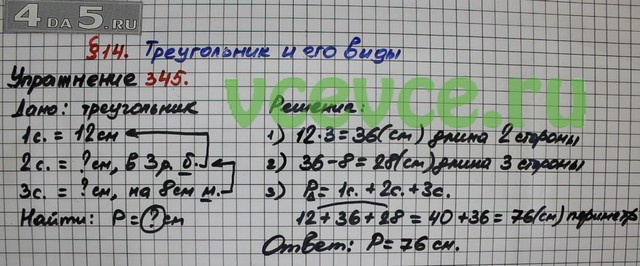 4 DA 5.RU
§14. Треугольник и его виды
Упражнение 345.
Дано: треугольник
1с. = 12см
2с. = ?см, в 3р. б.
3с. = ?см, на 8см м.
Найти: P = ? см
vcevce.ru
Решение:
1) 12·3=36(см) длина 2 стороны
2) 36-8=28(см) длина 3 стороны
3) P△=1с.+2с.+3с.
12+36+28=40+36=76(см) периметр
Ответ: P=76 см.